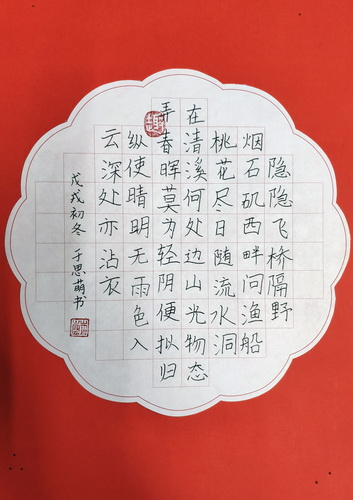 隐隐飞桥隔野
烟石矶西畔问渔船
桃花尽日随流水洞
在清溪何处边山光物态
弄春晖莫为轻阴便拟归
纵使晴明无雨色入
云深处亦沾衣
戊戌初冬 于思萌书